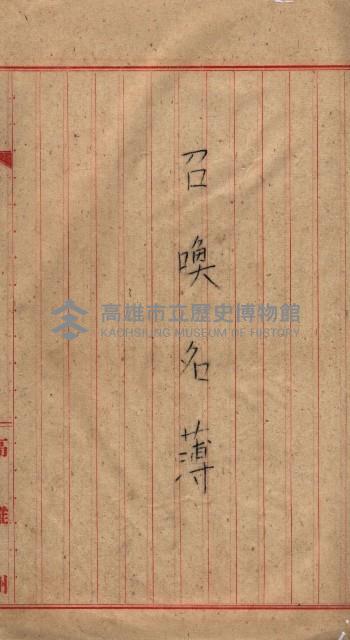 召喚名薄
高雄市立歷史博物館
KAOHSIUNG MUSEUM OF HISTORY
高雄州